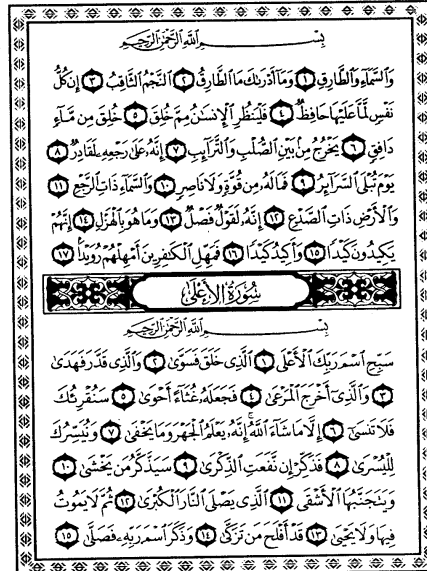 بِسْمِ ٱللَّهِ ٱلرَّحْمَٰنِ ٱلرَّحِيمِ
وَٱلسَّمَآءِ وَٱلطَّارِقِ ١ وَمَآ أَدْرَىٰكَ مَا ٱلطَّارِقُ ٢ ٱلنَّجْمُ ٱلثَّاقِبُ ٣ إِن كُلُّ
نَفْسٍ لَّمَّا عَلَيْهَا حَافِظٌ ٤ فَلْيَنظُرِ ٱلْإِنسَٰنُ مِمَّ خُلِقَ ٥ خُلِقَ مِن مَّآءٍ
دَافِقٍ ٦ يَخْرُجُ مِنۢ بَيْنِ ٱلصُّلْبِ وَٱلتَّرَآئِبِ ٧ إِنَّهُۥ عَلَىٰ رَجْعِهِۦ لَقَادِرٌ ٨
يَوْمَ تُبْلَى ٱلسَّرَآئِرُ ٩ فَمَا لَهُۥ مِن قُوَّةٍ وَلَا نَاصِرٍ ١٠ وَٱلسَّمَآءِ ذَاتِ ٱلرَّجْعِ ١١
وَٱلْأَرْضِ ذَاتِ ٱلصَّدْعِ ١٢ إِنَّهُۥ لَقَوْلٌ فَصْلٌ ١٣ وَمَا هُوَ بِٱلْهَزْلِ ١٤ إِنَّهُمْ
يَكِيدُونَ كَيْدًا ١٥ وَأَكِيدُ كَيْدًا ١٦ فَمَهِّلِ ٱلْكَٰفِرِينَ أَمْهِلْهُمْ رُوَيْدًۢا ١٧
سُورَةُ الأَعْلَىٰ
بِسْمِ ٱللَّهِ ٱلرَّحْمَٰنِ ٱلرَّحِيمِ
سَبِّحِ ٱسْمَ رَبِّكَ ٱلْأَعْلَى ١ ٱلَّذِى خَلَقَ فَسَوَّىٰ ٢ وَٱلَّذِى قَدَّرَ فَهَدَىٰ
٣ وَٱلَّذِىٓ أَخْرَجَ ٱلْمَرْعَىٰ ٤ فَجَعَلَهُۥ غُثَآءً أَحْوَىٰ ٥ سَنُقْرِئُكَ
فَلَا تَنسَىٰٓ ٦ إِلَّا مَا شَآءَ ٱللَّهُ ۚ إِنَّهُۥ يَعْلَمُ ٱلْجَهْرَ وَمَا يَخْفَىٰ ٧ وَنُيَسِّرُكَ
لِلْيُسْرَىٰ ٨ فَذَكِّرْ إِن نَّفَعَتِ ٱلذِّكْرَىٰ ٩ سَيَذَّكَّرُ مَن يَخْشَىٰ ١٠
وَيَتَجَنَّبُهَا ٱلْأَشْقَى ١١ ٱلَّذِى يَصْلَى ٱلنَّارَ ٱلْكُبْرَىٰ ١٢ ثُمَّ لَا يَمُوتُ
فِيهَا وَلَا يَحْيَىٰ ١٣ قَدْ أَفْلَحَ مَن تَزَكَّىٰ ١٤ وَذَكَرَ ٱسْمَ رَبِّهِۦ فَصَلَّىٰ ١٥